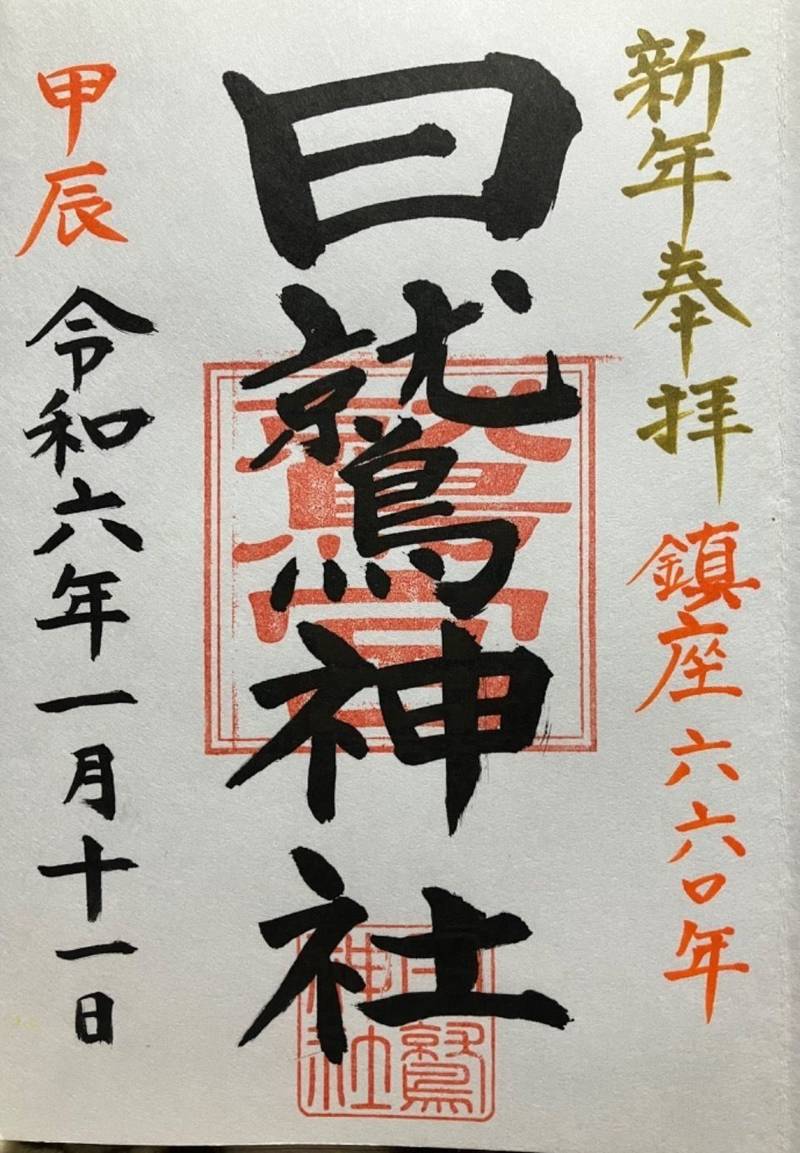 新年奉拝
鎮座六六〇年
日鷲神社
鷲宮
日鷲
神社
甲辰
令和六年一月十一日